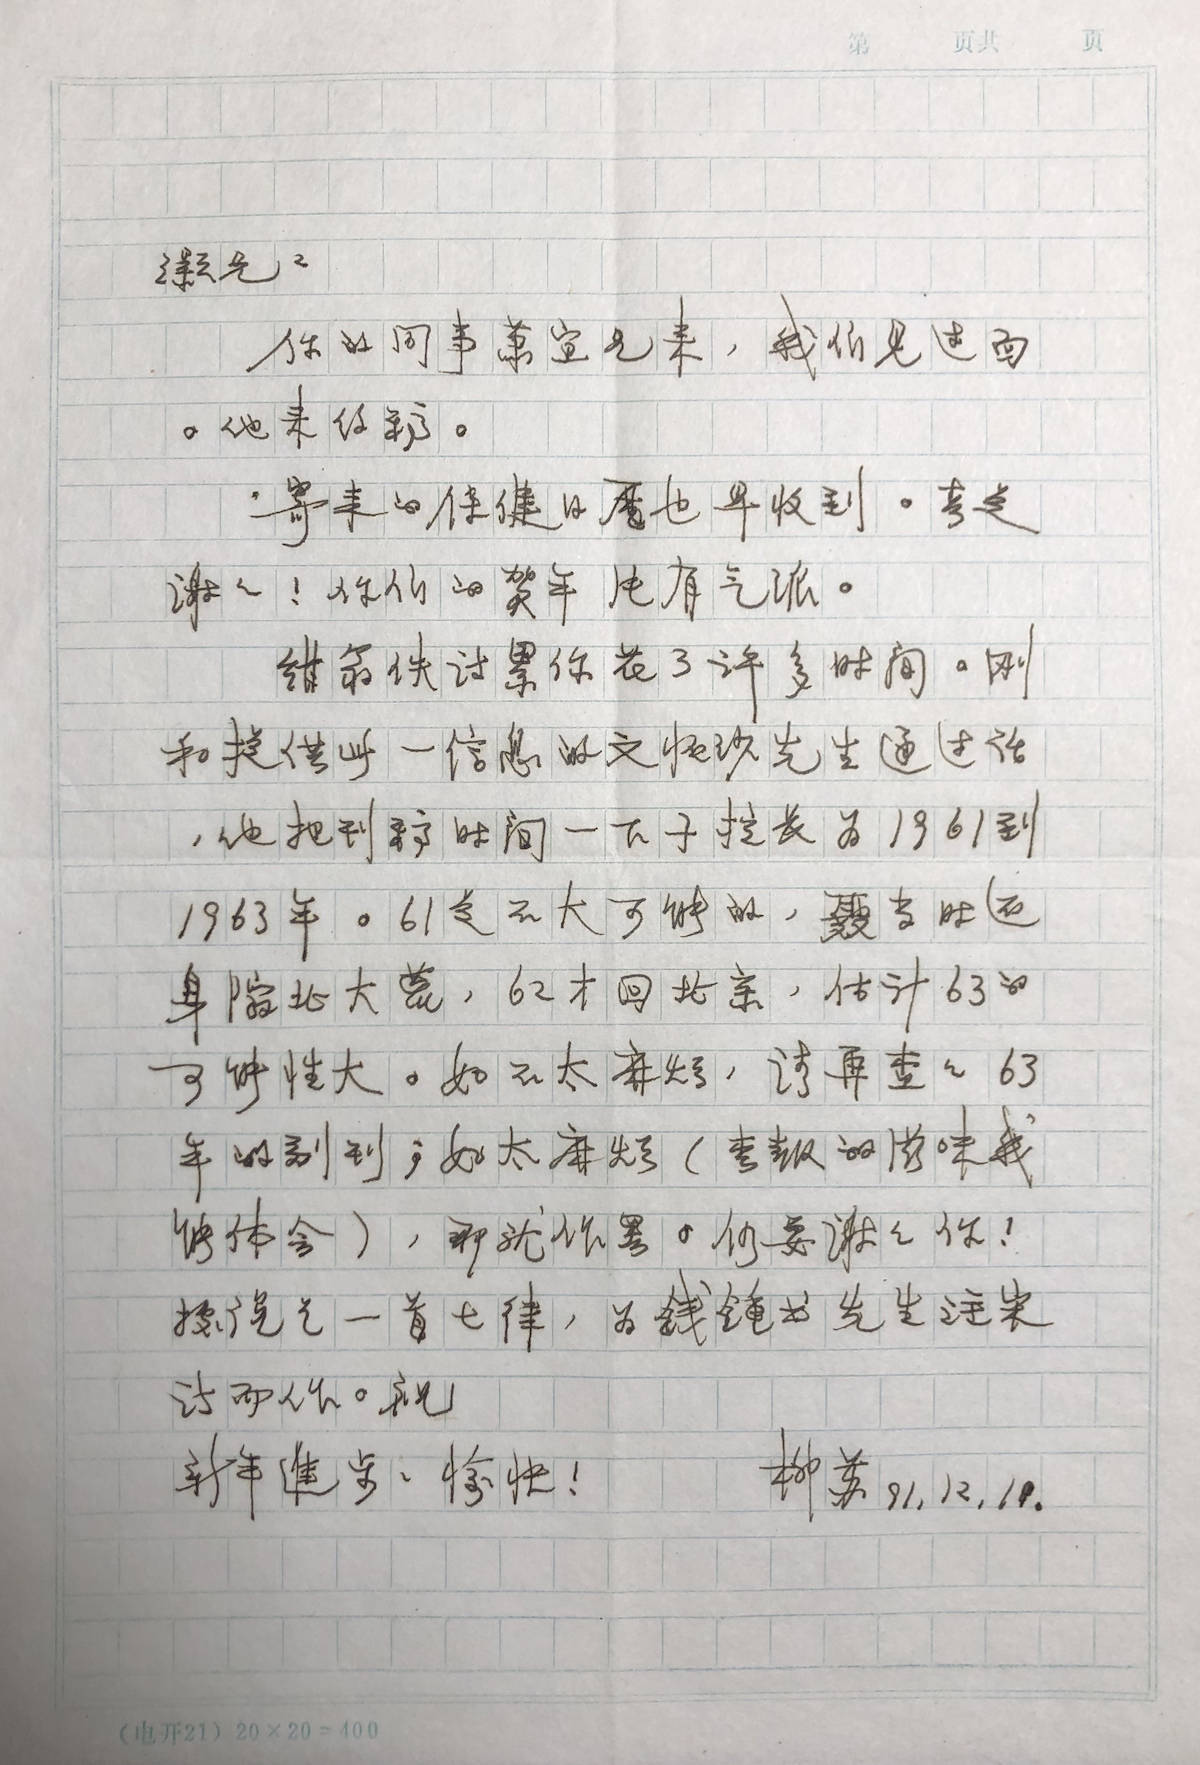 第　页共　页
灏兄：
你的同事萧宜兄来，我们见过面
。他来约稿。
寄来的保健日历也早收到。真是
谢谢！你们的贺年片有气派。
绀翁佚诗累你花了许多时间。刚
和提供此一信息的文怀沙先生通过话
，他把刊稿时间一下子拉长为1961到
1963年。61是不大可能的，聂当时还
身陷北大荒，62才回北京，估计63的
可能性大。如不太麻烦，请再查查63
年的副刊；如太麻烦（查报的滋味我
能体会），那就作罢。仍要谢谢你！
据说是一首七律，为钱锺书先生注宋
诗而作。祝
新年进步、愉快！　柳苏 91.12.19.
（电开21）20×20=400